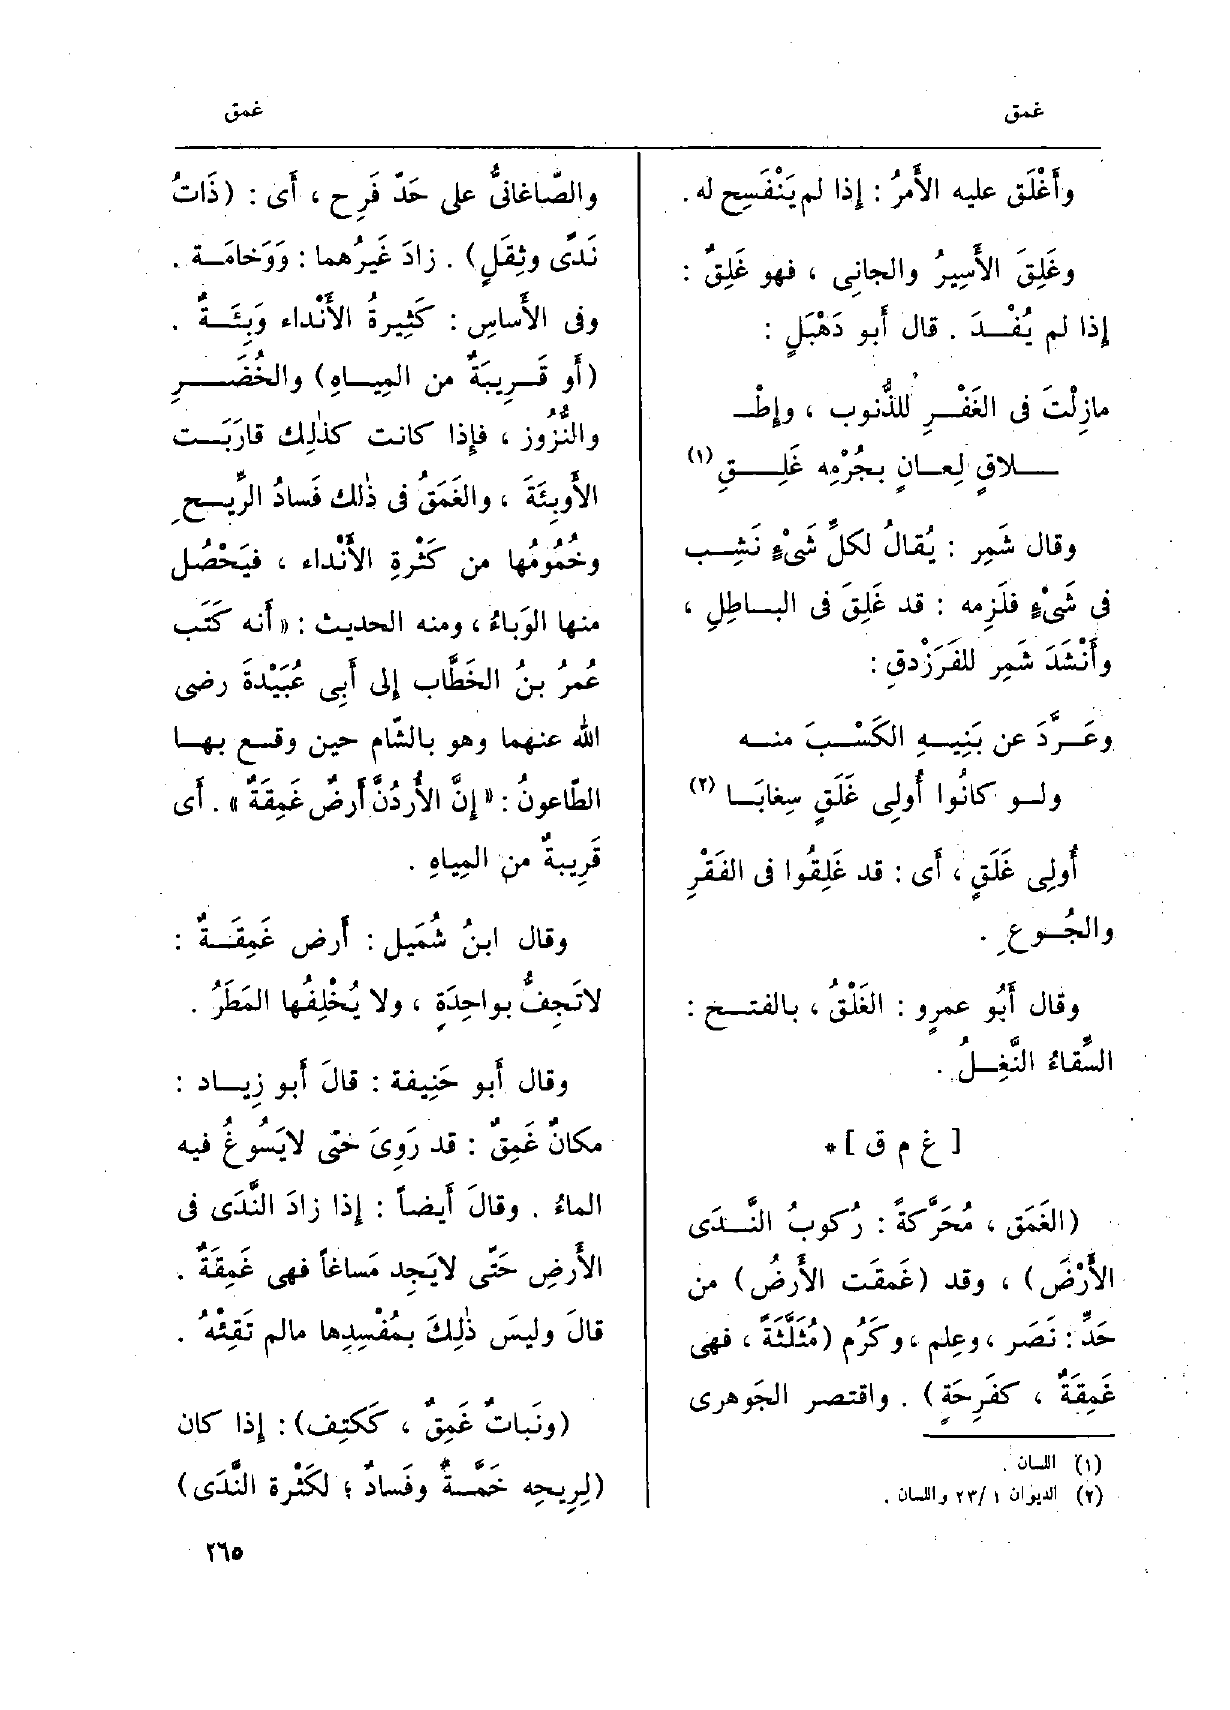 غمق
غمق
وأَغْلَق عليه الأَمرُ : إذا لم يَنْفَسِح له .
وغَلِقَ الأَسِيرُ والجانِى ، فهو غَلِقٌ :
إذا لم يُفْــدَ . قال أَبو دَهْبَلٍ :
مازِلْتَ فى الغَفْــرِ للذُّنوب ، وإطْـ
ــلاقٍ لِعـانٍ بجُرْمِه غَلِــقِ (١)
وقال شَمِر : يُقالُ لكلِّ شَىْءٍ نَشِــب
فى شَىْءٍ فلَزِمه : قد غَلِقَ فى البـاطِلِ ،
وأَنْشَدَ شَمِر للفَرَزْدقِ :
وعَــرَّدَ عن بَنِيــهِ الكَسْــبَ منــه
ولــو كانُوا أُولِى غَلَقٍ سِغابَــا (٢)
أُولِى غَلَقٍ ، أَى : قد غَلِقُوا فى الفَقْرِ
والجُــوعِ .
وقال أَبُو عمرٍو : الغَلْقُ ، بالفتــح :
السِّقاءُ النَّغِــلُ .
[ غ م ق ] *
(الغَمَق ، مُحَرَّكةً : رُكوبُ النَّــدَى
الأَرْضَ) ، وقد (غَمقَت الأَرضُ) من
حَدِّ : نَصَر ، وعِلم ، وكَرُم (مُثَلَّثَةً ، فهى
غَمِقَةٌ ، كفَرِحَةٍ) . واقتصر الجَوهرى
(١) اللسان .
(٢) الديوان ١ /٢٣ واللسان .
والصّاغانىُّ على حَدّ فَرِح ، أَى : (ذَاتُ
نَدًى وثِقَلٍ) . زادَ غَيرُهما : وَوَخامَــة .
وفى الأَساسِ : كَثِيرةُ الأَنْداء وَبِئَــةٌ .
(أَو قَــرِيبَةٌ من المِيــاهِ) والخُضَــرِ
والنُّزُوز ، فإذا كانت كذٰلِك قارَبَــت
الأَوبِئَةَ ، والغَمَقُ فى ذٰلك فَسادُ الرِّيــحِ
وخُمُومُها من كَثْرةِ الأَنْداء ، فيَحْصُل
منها الوَباءُ ، ومنه الحديث : « أَنه كَتَب
عُمرُ بنُ الخَطَّاب إلى أَبِى عُبَيْدةَ رضى
الله عنهما وهو بالشّام حين وقــع بهــا
الطّاعونُ : « إنَّ الأُرْدُنَّ أَرضٌ غَمِقةٌ » . أَى
قَرِيبةٌ من المِياهِ .
وقال ابنُ شُمَيل : أَرض غَمِقَــةٌ :
لاتَجِفُّ بواحِدَةٍ ، ولا يُخْلِفُها المَطَرُ .
وقال أَبو حَنِيفة : قالَ أَبو زِيــاد :
مكانٌ غَمِقٌ : قد رَوِىَ حتى لايَسُوغُ فيه
الماءُ . وقالَ أَيضاً : إذا زادَ النَّدَى فى
الأَرضِ حَتَّى لايَجِد مَساغاً فهى غَمِقَةٌ .
قالَ وليسَ ذٰلِكَ بمُفْسِدِها مالم تَقِئْهُ .
(ونَباتٌ غَمِقٌ ، ككَتِف) : إذا كان
(لِرِيحِه خَمَّــةٌ وفَسادٌ ؛ لكَثْرة النَّدَى)
٢٦٥